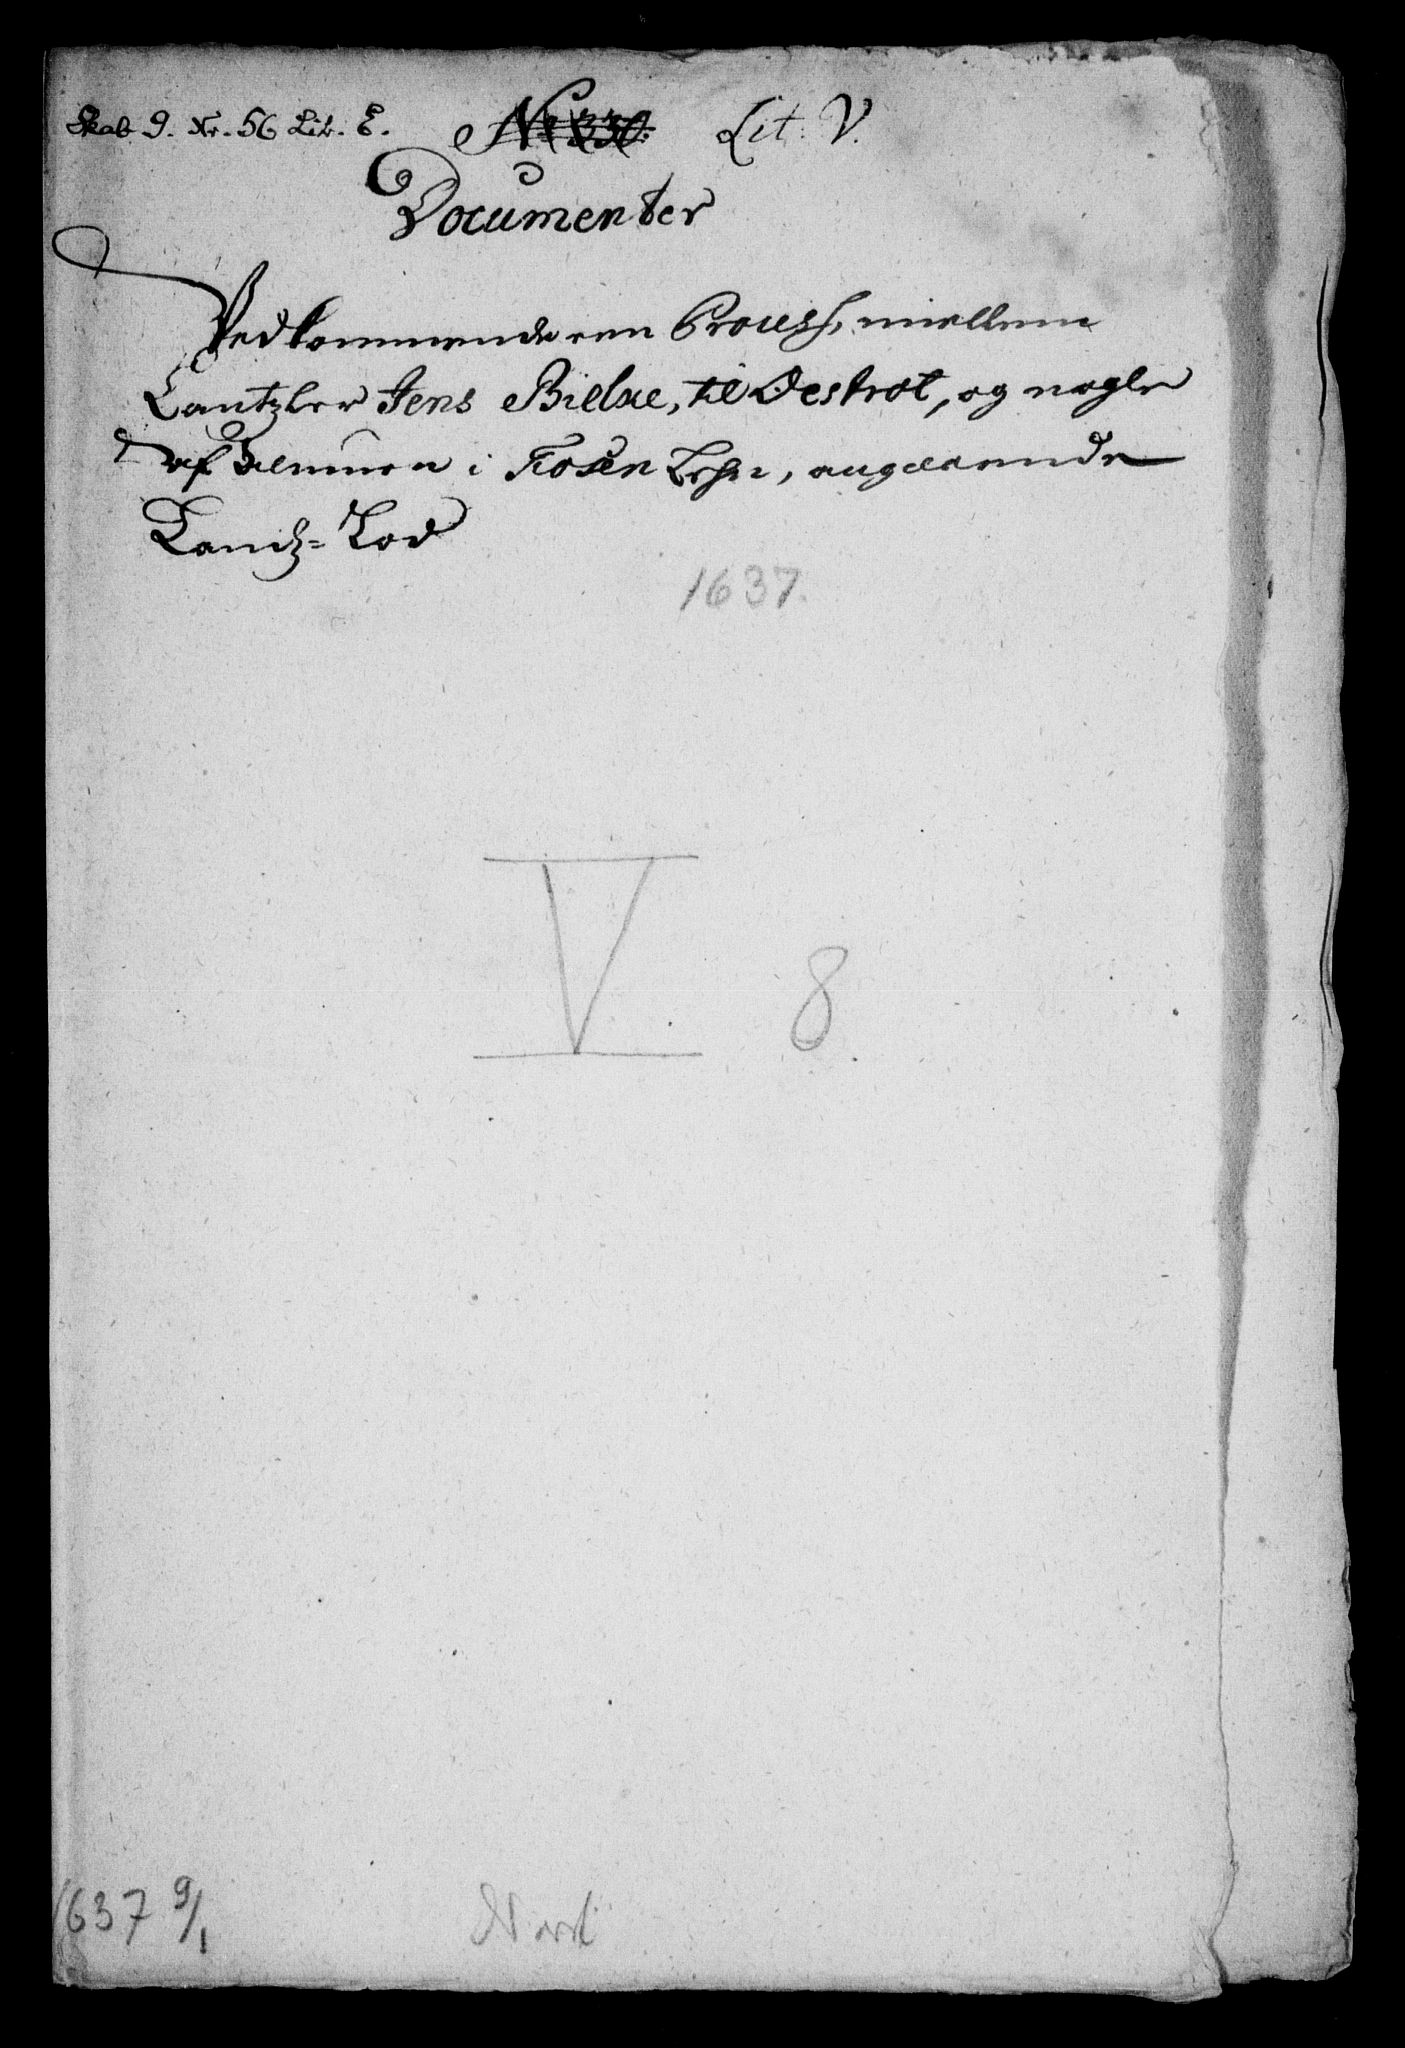 Skab 9. Nr. 56 Lit. E. No 330. Lit: V.
Documenter
Vedkommende een Process, mellem
Cantzler Jens Bielke, til Østrot, og nogle
af Almuen i Fosen Lehn, angaaende
Landz-Lod
1637.
V 8
1637 9/1